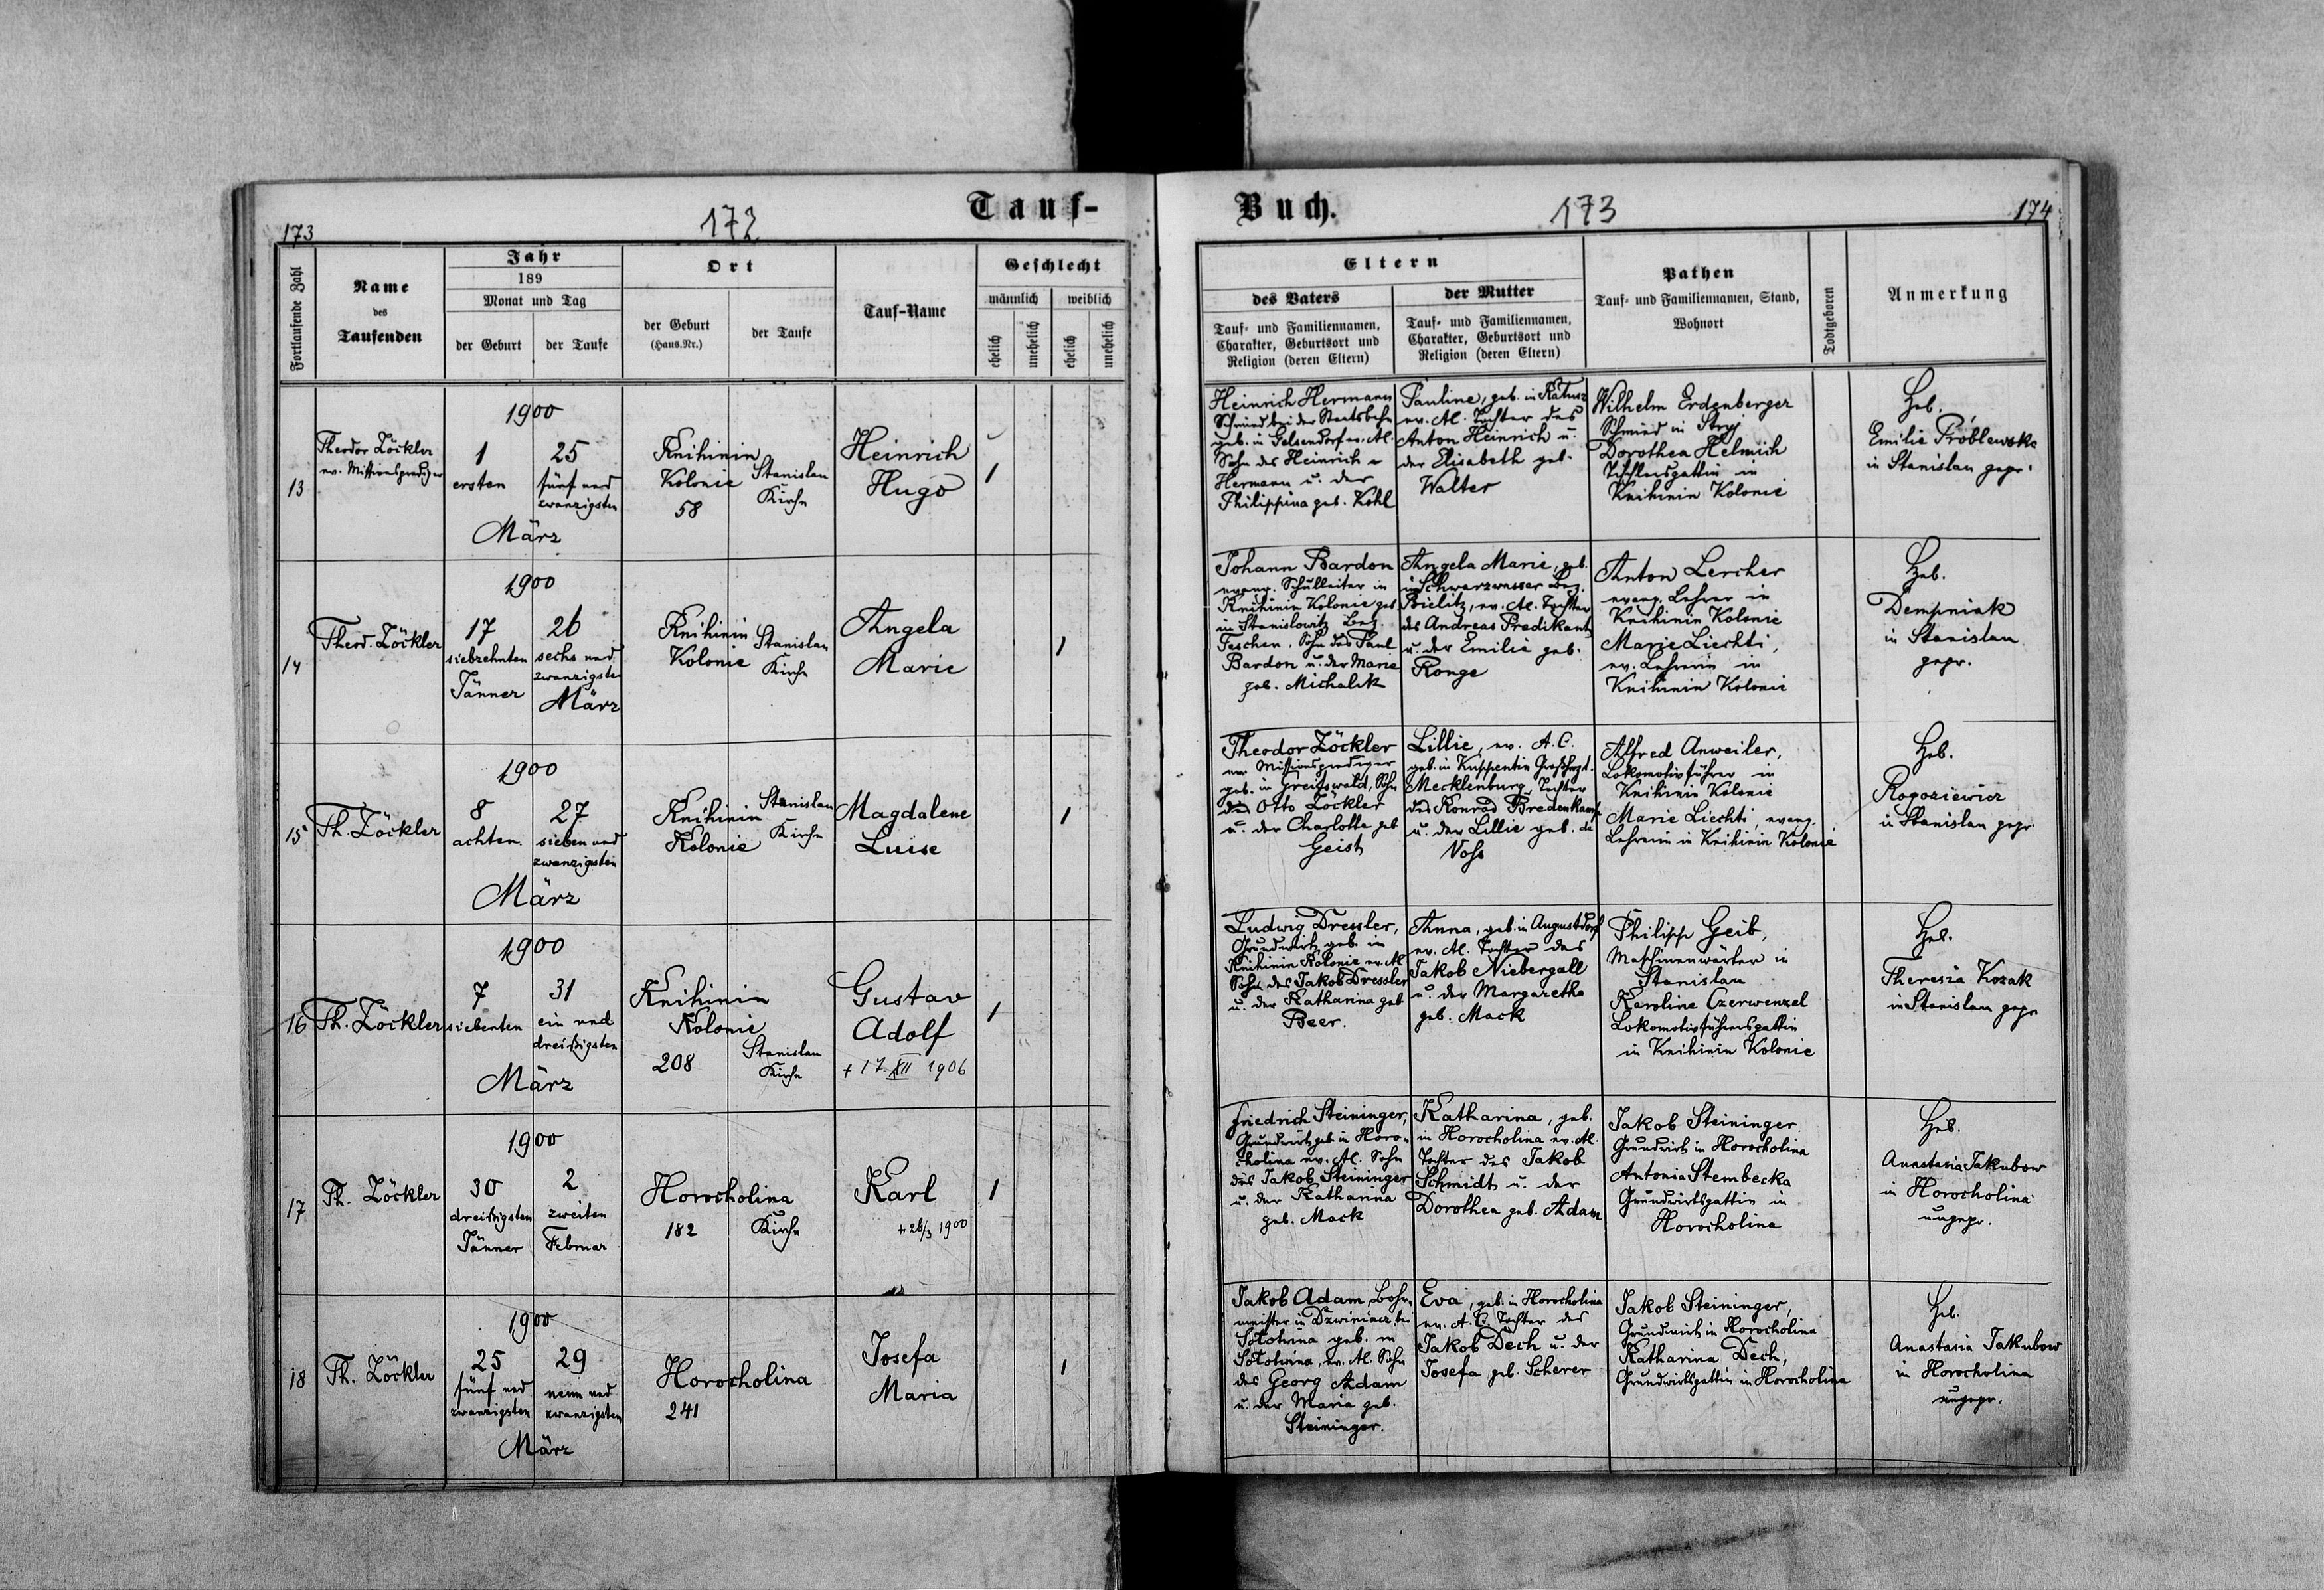 173
172
Tauf-
Fortlaufende Zahl
Name
des
Taufenden
Jahr
189
Monat und Tag
der Geburt
der Taufe
Ort
der Geburt
(Haus-Nr.)
der Taufe
Tauf-Name
Geschlecht
männlich
weiblich
ehelich
unehelich
ehelich
unehelich
13
Theodor Zöckler
ev. Missionsprediger
1900
1
ersten
25
fünf und
zwanzigsten
März
Knihinin
Kolonie
58
Stanislau
Kirche
Heinrich
Hugo
1
14
Theod. Zöckler
1900
17
siebzehnten
Jänner
26
sechs und
zwanzigsten
März
Knihinin
Kolonie
Stanislau
Kirche
Angela
Marie
1
15
Th. Zöckler
1900
8
achten
27
sieben und
zwanzigsten
März
Knihinin
Kolonie
Stanislau
Kirche
Magdalene
Luise
1
16
Th. Zöckler
1900
7
siebenten
31
ein und
dreißigsten
März
Knihinin
Kolonie
208
Stanislau
Kirche
Gustav
Adolf
+ 17 XII 1906
1
17
Th. Zöckler
1900
30
dreißigsten
Jänner
2
zweiten
Februar
Horocholina
182
Kirche
Karl
+ 26/3 1900
1
18
Th. Zöckler
1900
25
fünf und
zwanzigsten
29
neun und
zwanzigsten
März
Horocholina
241
Josefa
Maria
1
Buch.
173
174
Eltern
des Vaters
Tauf- und Familiennamen,
Charakter, Geburtsort und
Religion (deren Eltern)
der Mutter
Tauf- und Familiennamen,
Charakter, Geburtsort und
Religion (deren Eltern)
Pathen
Tauf- und Familiennamen, Stand,
Wohnort
Todtgeboren
Anmerkung
Heinrich Hermann
Schmied bei der Staatsbahn
geb. in Felsendorf ev. Al.
Sohn des Heinrich
Hermann u. der
Philippina geb. Kohl
Pauline, geb. in Katusz
ev. Al. Tochter des
Anton Heinrich u.
der Elisabeth geb.
Walter
Wilhelm Erdenberger
Schmied in Stryj
Dorothea Helmich
Tischlersgattin in
Knihinin Kolonie
Heb.
Emilie Próblewska
in Stanislau gepr.
Johann Bardon
evang. Schulleiter in
Knihinin Kolonie geb.
in Stanislowitz Bez.
Teschen, Sohn des Paul
Bardon u. der Marie
geb. Michalik
Angela Marie, geb.
in Schwarzwasser Bez.
Bielitz, ev. Al. Tochter
des Andreas Predikant
u. der Emilie geb.
Ronge
Anton Lercher
evang. Lehrer in
Knihinin Kolonie
Marie Liechti,
ev. Lehrerin in
Knihinin Kolonie
Heb.
Dempniak
in Stanislau
gepr.
Theodor Zöckler
ev. Missionsprediger
geb. in Greifswald, Sohn
des Otto Zöckler
u. der Charlotte geb
Geist
Lillie, ev. A.C.
geb. in Kuppentin Großhrzt.
Mecklenburg, Tochter
des Konrad Bredenkamp
u. der Lillie geb. de
Voss
Alfred Anweiler,
Lokomotivführer in
Knihinin Kolonie
Marie Liechti, evang.
Lehrerin in Knihinin Kolonie
Heb.
Rogoziewicz
in Stanislau gepr.
Ludwig Dressler,
Grundwirth geb. in
Knihinin Kolonie ev. Al
Sohn des Jakob Dressler
u. der Katharina geb
Beer.
Anna, geb. in Augustdorf
ev. Al. Tochter des
Jakob Niebergall
u. der Margaretha
geb. Mack
Philipp Geib,
Maschinenwärter in
Stanislau
Karoline Czerwenzel
Lokomotivführersgattin
in Knihinin Kolonie
Heb.
Theresia Kozak
in Stanislau gepr
Friedrich Steininger,
Grundwirt geb. in Horo-
cholina ev. Al. Sohn
des Jakob Steininger
u. der Katharina
geb. Mack
Katharina, geb.
in Horocholina ev. Al.
Tochter des Jakob
Schmidt u. der
Dorothea geb. Adam
Jakob Steininger
Grundwirt in Horocholina
Antonia Stembecka
Grundwirtsgattin in
Horocholina
Heb.
Anastasia Jakubow
in Horocholina
ungepr.
Jakob Adam, Bohr-
meister in Dzwiniacz bei
Sołotwina geb. in
Sołotwina, ev. Al. Sohn
des Georg Adam
u. der Maria geb.
Steininger.
Eva, geb. in Horocholina
ev. A. C. Tochter des
Jakob Dech u. der
Josefa geb. Scherer
Jakob Steininger,
Grundwirt in Horocholina
Katharina Dech,
Grundwirtsgattin in Horocholina
Heb.
Anastasia Jakubow
in Horocholina
ungepr.